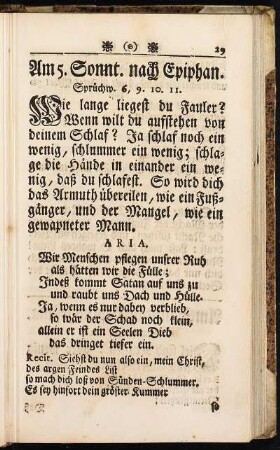 (o) 29
Am 5. Sonnt. nach Epiphan.
Sprüchw. 6, 9. 10. 11.
Wie lange liegest du Fauler?
Wenn wilt du aufstehen von
deinem Schlaf? Ja schlaf noch ein
wenig, schlummer ein wenig; schla-
ge die Hände in einander ein we-
nig, daß du schlafest. So wird dich
das Armuth übereilen, wie ein Fuß-
gänger, und der Mangel, wie ein
gewapneter Mann.
ARIA.
Wir Menschen pflegen unsrer Ruh
als hätten wir die Fülle;
Indeß kommt Satan auf uns zu
und raubt uns Dach und Hülle.
Ja, wenn es nur dabey verblieb,
so wär der Schad noch klein,
allein er ist ein Seelen Dieb
das dringet tiefer ein.
Recit. Siehst du nun also ein, mein Christ,
des argen Feindes List
so mach dich loß von Sünden-Schlummer.
Es sey hinfort dein gröster Kummer
so